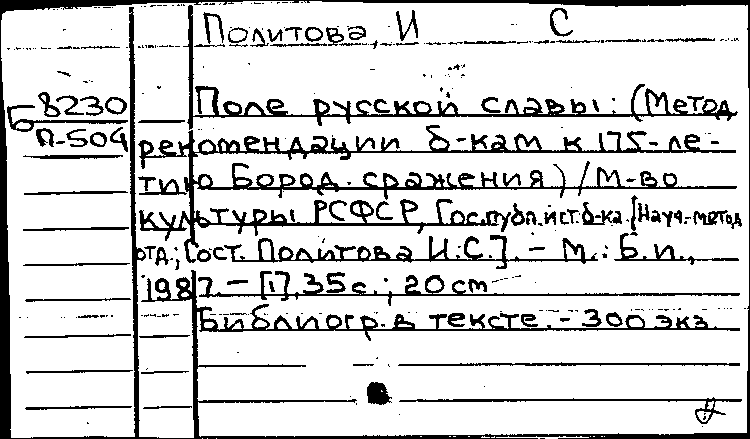 Политова, И С
Б 8230
П-504
Поле русской славы: (Метод
рекомендации б-кам к 175-ле-
тию Бород. сражения) / М-во
культуры РСФСР, Гос.публ.ист.б-ка. [Науч.-метод
отд.; Сост. Политова И.С.]. - М.: Б.и.,
1987. - [1], 35 с.; 20 cm
Библиогр. в тексте. - 300 экз.